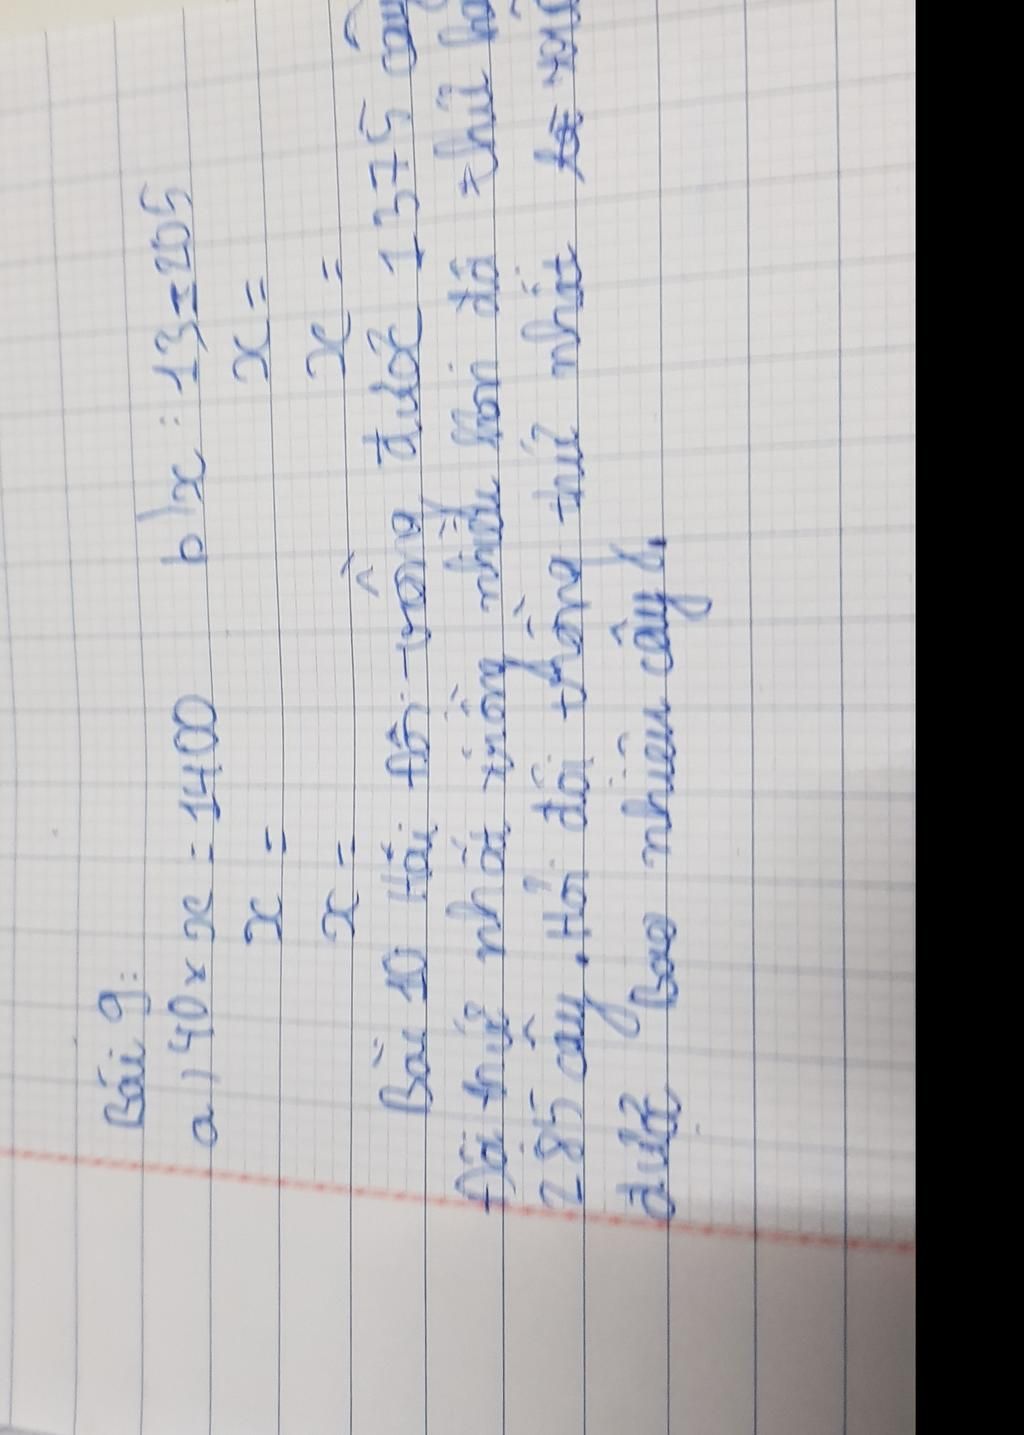 Bài 9:
a, 40 x x = 1400 b) x : 13 = 205
x = x =
x = x =
Bài 10 Hai đội trồng được 1375 cây
Đội thứ nhất trồng nhiều hơn đội thứ ha
285 cây. Hỏi đội trồng thứ nhất
được Bao nhiêu cây